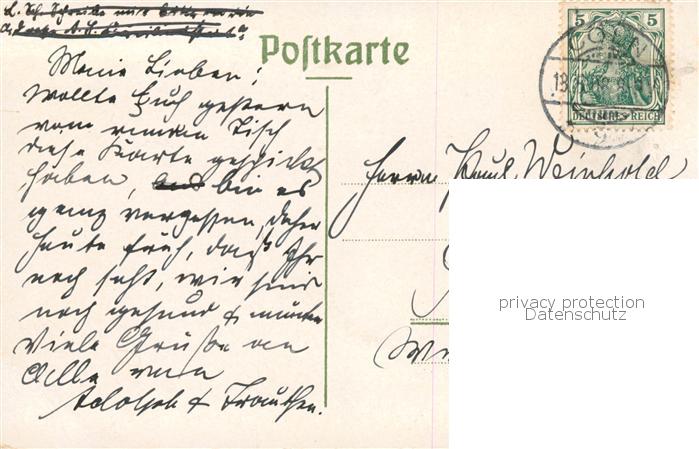 Postkarte
5 5
CÖLN
DEUTSCHES REICH
Meine Lieben!
wollte Euch gestern
vom runden Tisch
diese Karte geschickt
haben, bin es
ganz vergessen, daher
heute früh, daß Ihr
noch seht, wir sind
noch gesund & munter
Viele Grüße an
Alle von
Adolph & Trautchen.
Herrn Paul Weinhold
privacy protection
Datenschutz